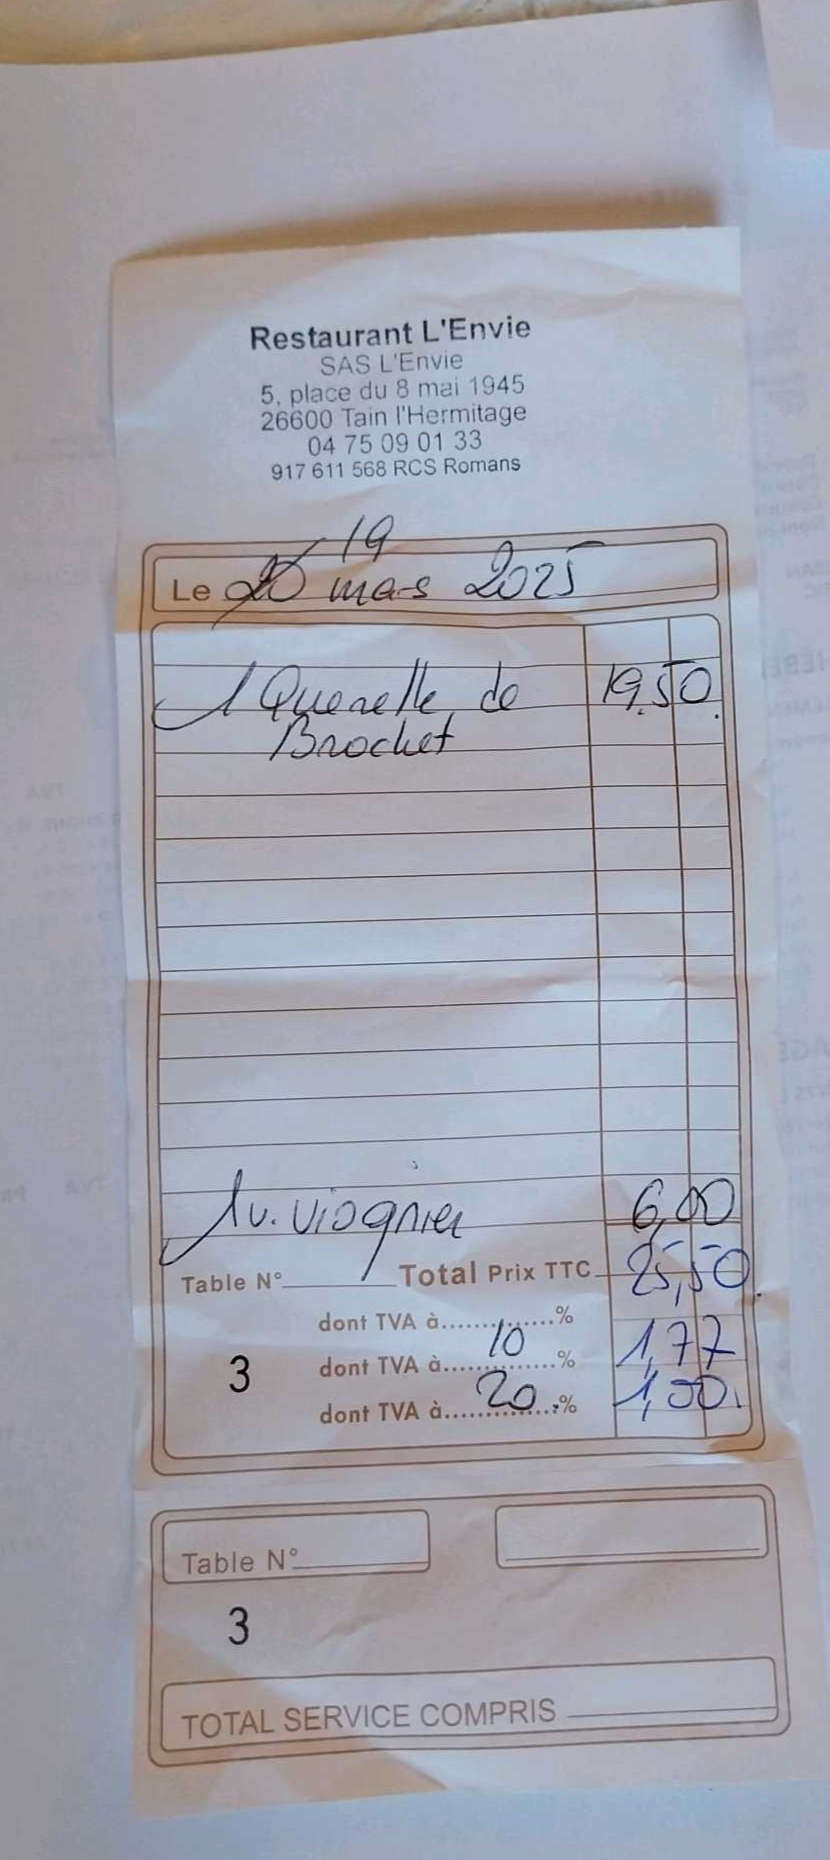 Restaurant L'Envie
SAS L'Envie
5, place du 8 mai 1945
26600 Tain l'Hermitage
04 75 09 01 33
917 611 568 RCS Romans
19
Le 20 mars 2025
1 Quenelle de 19.50
Brochet
1 v. viognier 6,00
Table N° Total Prix TTC 25,50
dont TVA à..............%
3 dont TVA à 10 % 1,77
dont TVA à 20 % 1,00
Table N°
3
TOTAL SERVICE COMPRIS